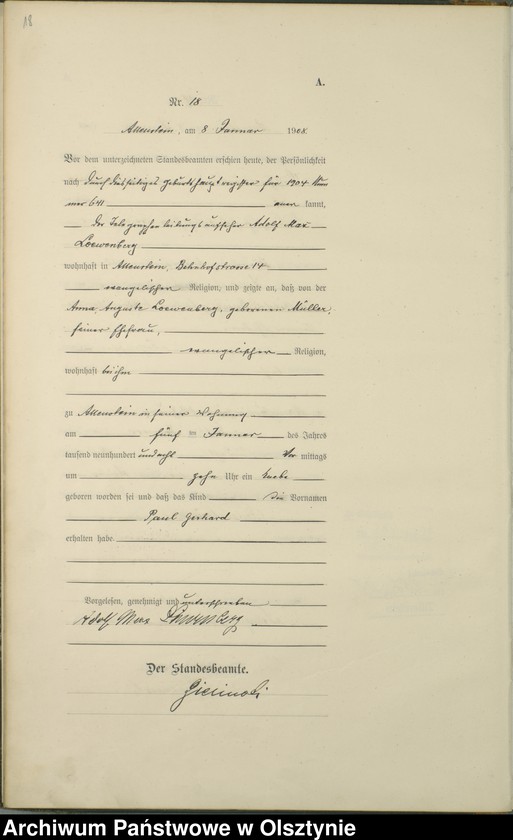 18
A.
Nr. 18
Allenstein, am 8 Januar 1908.
Vor dem unterzeichneten Standesbeamten erschien heute, der Persönlichkeit
nach durch diesseitiges Geburtshauptregister für 1904 Num
mer 641 aner kannt,
der Telegraphenleitungsaufseher Adolf Max
Loewenberg
wohnhaft in Allenstein, Bahnhofstrasse 14
evangelischer Religion, und zeigte an, daß von der
Anna, Auguste Loewenberg, geborenen Müller,
seiner Ehefrau,
evangelischer Religion,
wohnhaft bei ihm
zu Allenstein in seiner Wohnung
am fünf ten Januar des Jahres
tausend neunhundert und acht Vor mittags
um zehn Uhr ein Knabe
geboren worden sei und daß das Kind die Vornamen
Paul Gerhard
erhalten habe.
Vorgelesen, genehmigt und unterschrieben
Adolf Max Löwenberg
Der Standesbeamte.
Archiwum Państwowe w Olsztynie